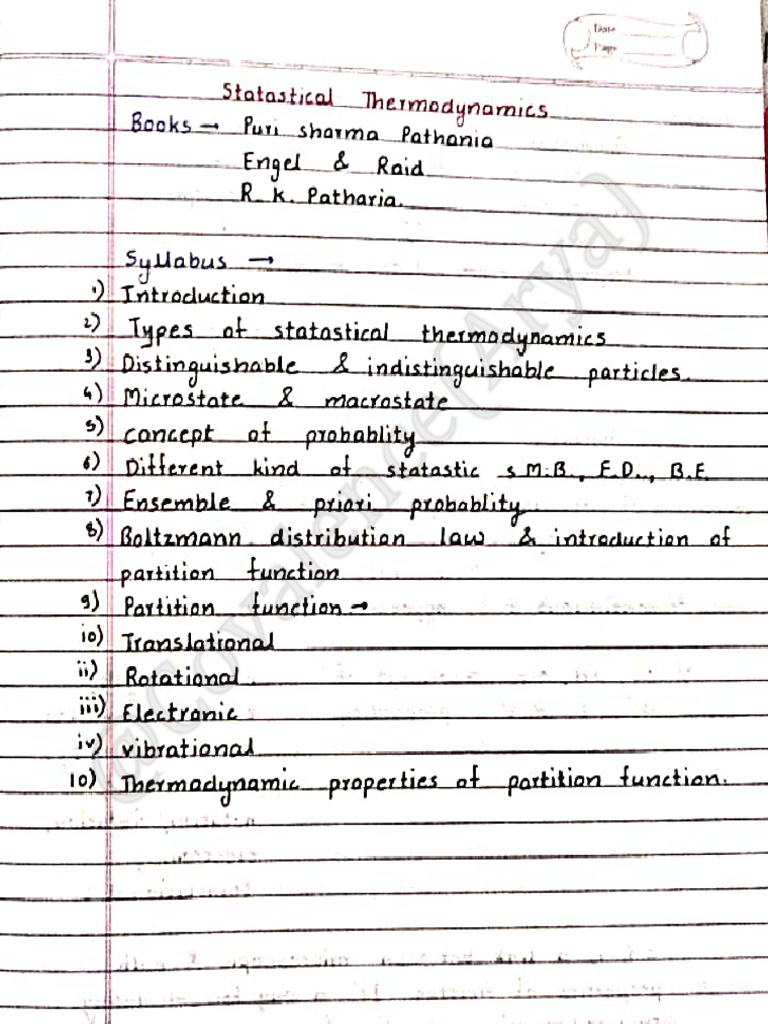 Date
Page
Statastical Thermodynamics
Books → Puri sharma Pathania
Engel & Raid
R. K. Patharia.
Syllabus →
1) Introduction
2) Types of statastical thermodynamics
3) Distinguishable & indistinguishable particles.
4) Microstate & macrostate
5) concept of probablity
6) Different kind of statastic s M.B., F.D., B.E
7) Ensemble & priori probablity
8) Boltzmann distribution law & introduction of
partition function
9) Partition function →
io) Translational
ii) Rotational
iii) Electronic
iv) vibrational
10) Thermodynamic properties of partition function.
@Covalence(Arya)